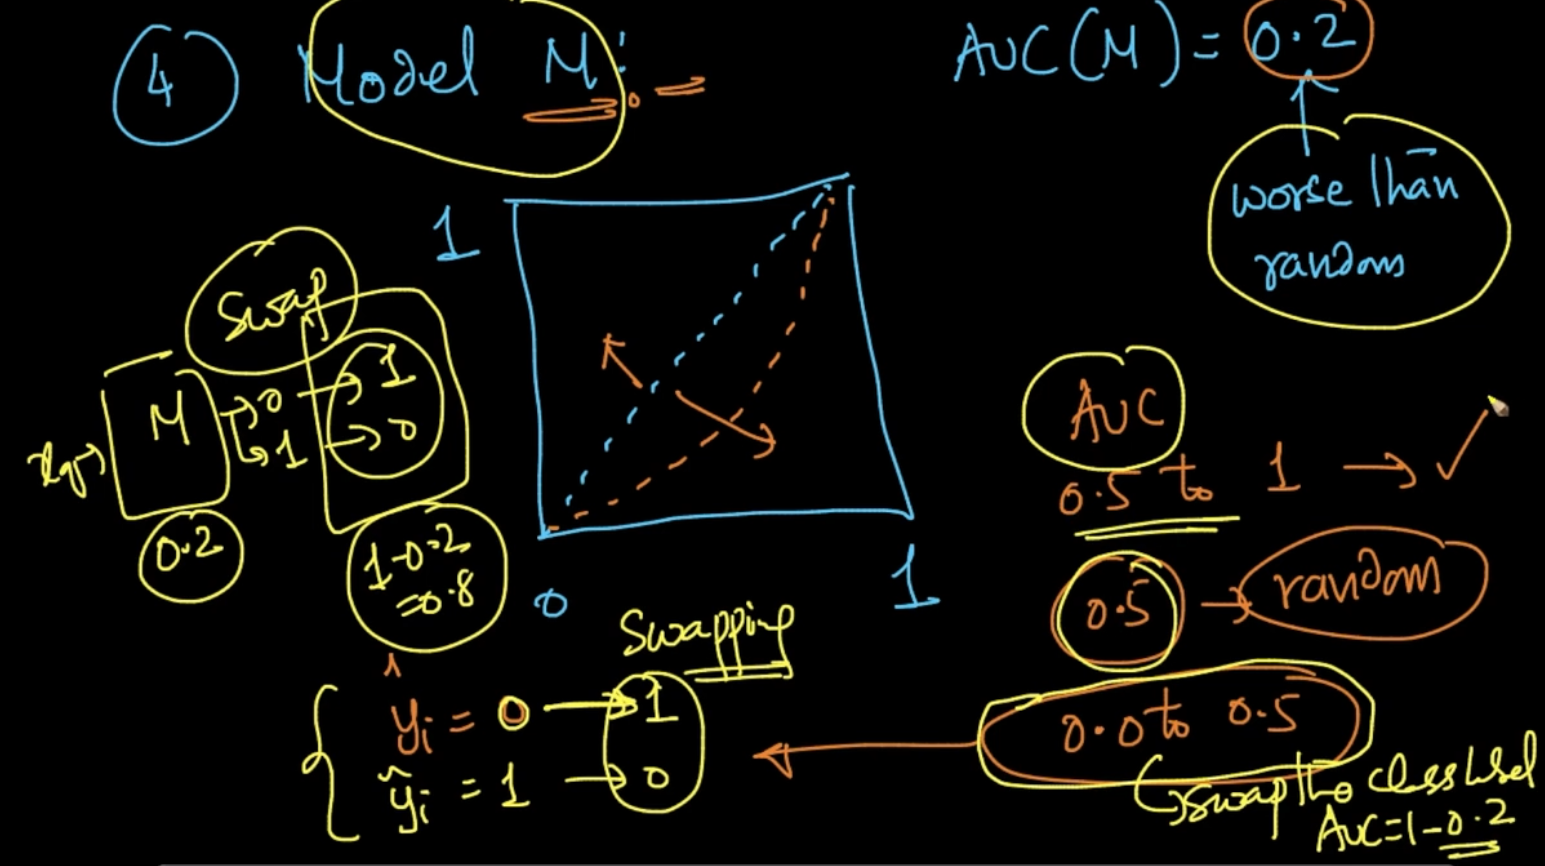 4 Model M:
AUC(M) = 0.2
worse than
random
1
Swap
M
0 → 1
1 → 0
xq →
0.2
1-0.2
=0.8
0
1
AUC
0.5 to 1 → ✓
0.5 → random
0.0 to 0.5
swap the class label
AUC=1-0.2
Swapping
ŷi = 0 → 1
ŷi = 1 → 0